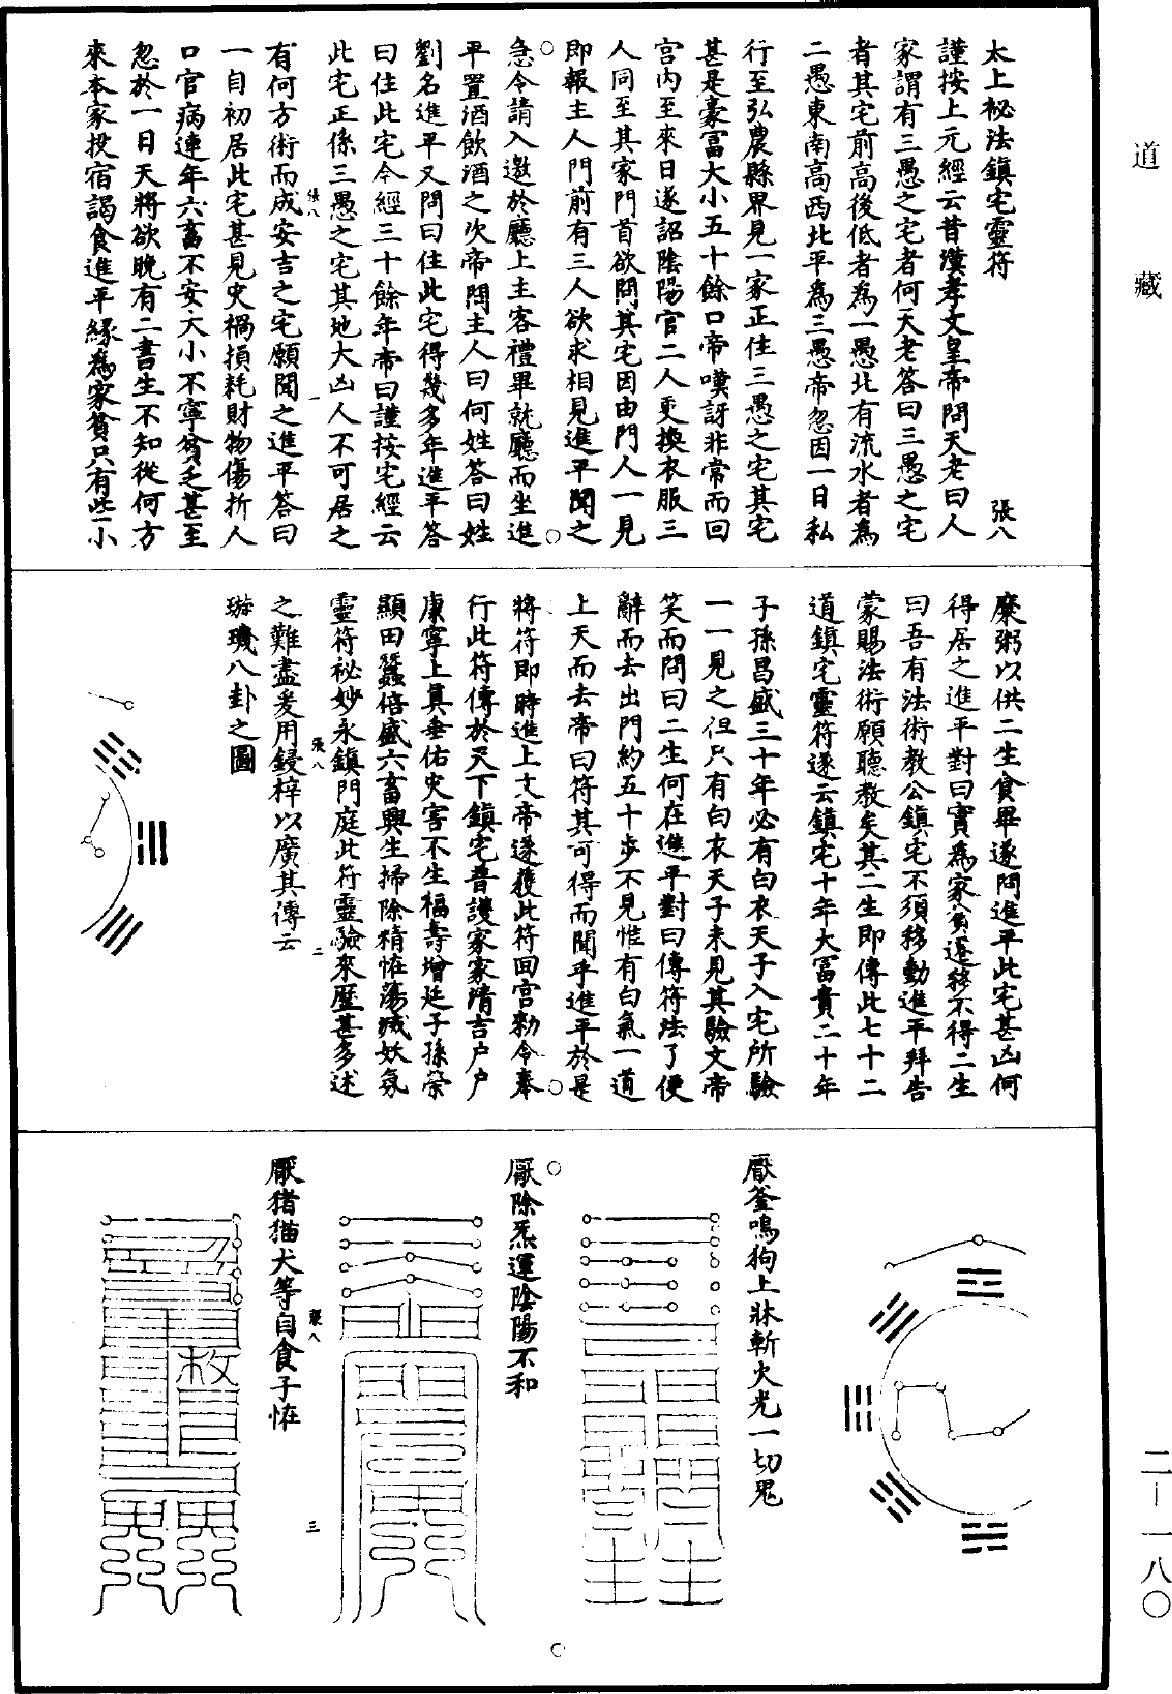 道藏
太上祕法鎮宅靈符
張八
謹按上元經云昔漢孝文皇帝問天老曰人
家謂有三愚之宅者何天老答曰三愚之宅
者其宅前高後低者為一愚北有流水者為
二愚東南高西北平為三愚帝忽因一日私
行至弘農縣界見一家正住三愚之宅其宅
甚是豪富大小五十餘口帝嘆訝非常而回
宮內至來日遂詔陰陽官二人更換衣服三
人同至其家門首欲問其宅因由門人一見
即報主人門前有三人欲求相見進平聞之
急令請入邀於廳上主客禮畢就廳而坐進
平置酒飲酒之次帝問主人曰何姓答曰姓
劉名進平又問曰住此宅得幾多年進平答
曰住此宅今經三十餘年帝曰謹按宅經云
此宅正係三愚之宅其地大凶人不可居之
張八
一
有何方術而成安吉之宅願聞之進平答曰
一自初居此宅甚見災禍損耗財物傷折人
口官病連年六畜不安大小不寧貧乏甚至
忽於一日天將欲晚有二書生不知從何方
來本家投宿謁食進平緣為家貧只有些小
糜粥以供二生食畢遂問進平此宅甚凶何
得居之進平對曰實為家貧遷移不得二生
曰吾有法術教公鎮宅不須移動進平拜告
蒙賜法術願聽教矣其二生即傳此七十二
道鎮宅靈符遂云鎮宅十年大富貴二十年
子孫昌盛三十年必有白衣天子入宅所驗
一一見之但只有白衣天子未見其驗文帝
笑而問曰二生何在進平對曰傳符法了便
辭而去出門約五十步不見惟有白氣一道
上天而去帝曰符其可得而聞乎進平於是
將符即時進上文帝遂獲此符回宮勑令奉
行此符傳於天下鎮宅普護家家清吉戶戶
康寧上真垂佑災害不生福壽增延子孫榮
顯田蠶倍盛六畜興生掃除精怪蕩滅妖氛
靈符祕妙永鎮門庭此符靈驗來歷甚多述
張八
二
之難盡爰用鋟梓以廣其傳云
璇璣八卦之圖
厭釜鳴狗上牀斬火光一切鬼
厭除炁運陰陽不和
張八
三
厭猪猫犬等自食子怪
二一一八〇